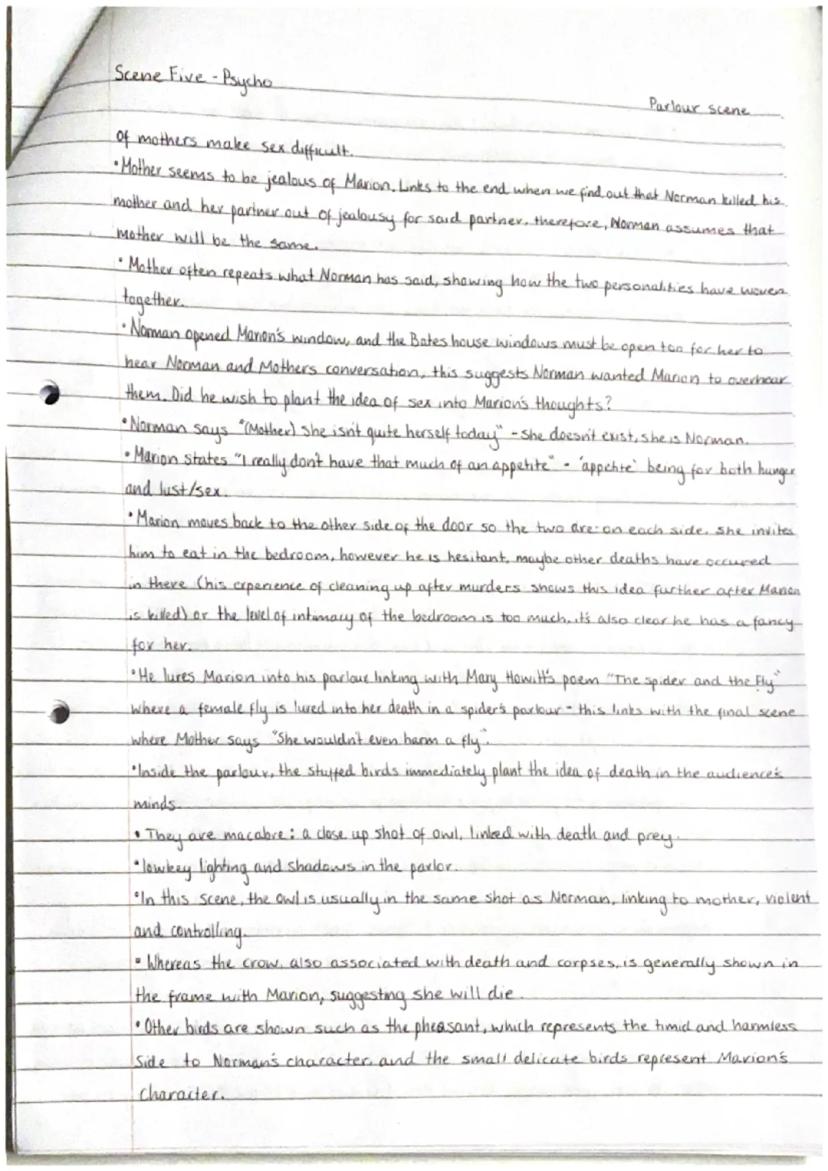 Scene Five - Psycho
Parlour scene
of mothers make sex difficult.
• Mother seems to be jealous of Marion. Links to the end when we find out that Norman killed his
mother and her partner out of jealousy for said partner, therefore, Norman assumes that
mother will be the same.
• Mother often repeats what Norman has said, showing how the two personalities have woven
together.
• Norman opened Marion's window, and the Bates house windows must be open too for her to
hear Norman and Mothers conversation, this suggests Norman wanted Marion to overhear
them. Did he wish to plant the idea of sex into Marion's thoughts?
• Norman says "(Mother) she isn't quite herself today" - she doesn't exist, she is Norman.
• Marion states "I really don't have that much of an appetite" - 'appetite' being for both hunger
and lust/sex.
• Marion moves back to the other side of the door so the two are on each side. she invites
him to eat in the bedroom, however he is hesitant, maybe other deaths have occured
in there (his experience of cleaning up after murders shows this idea further after Marion
is killed) or the level of intimacy of the bedroom is too much, it's also clear he has a fancy
for her.
• He lures Marion into his parlour linking with Mary Howitt's poem "The spider and the Fly"
where a female fly is lured into her death in a spider's parlour - this links with the final scene
where Mother says "She wouldn't even harm a fly".
• Inside the parlour, the stuffed birds immediately plant the idea of death in the audience's
minds.
• They are macabre: a close up shot of owl, linked with death and prey.
• lowkey lighting and shadows in the parlor.
• In this scene, the owl is usually in the same shot as Norman, linking to mother, violent
and controlling.
• Whereas the crow, also associated with death and corpses, is generally shown in
the frame with Marion, suggesting she will die.
• Other birds are shown such as the pheasant, which represents the timid and harmless
side to Norman's character, and the small delicate birds represent Marion's
character.